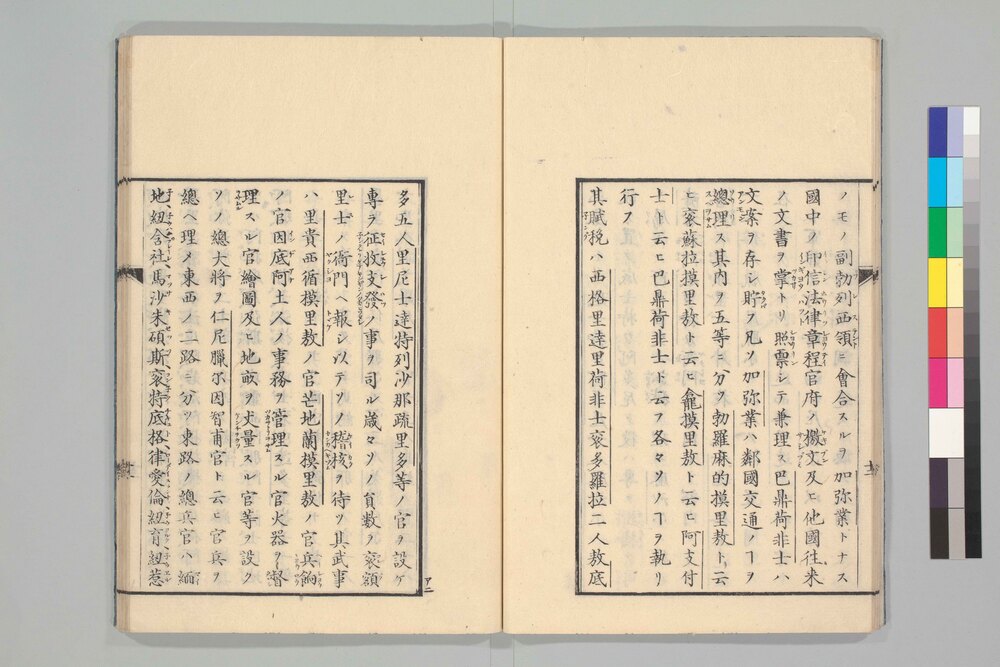 ノモノ副勃列西領ニ會合スルヲ加弥業トナス
國中ノ印信法律章程官府ノ檄文及ヒ他國往来
ノ文書ヲ掌トリ照票シテ兼理ス巴鼎荷非士ハ
文案ヲ存シ貯ヲ凡ソ加弥業ハ鄰國交通ノヿヲ
總理ス其内ヲ五等ニ分ヲ勃羅麻的摸里敖ト云
ヒ褒蘇拉摸里敖ト云ヒ龕摸里敖ト云ヒ阿支付
士ト云ヒ巴鼎荷非士ト云フ各々ソノヿヲ執リ
行フ
其賦税ハ西格里達里荷非士褒多羅拉二人敖底
多五人里尼士達特列沙那疏里多等ノ官ヲ設ケ
專ラ征收支發ノ事ヲ司ル歳々ソノ負数ヲ褒額
里士ノ衙門ヘ報シ以テソノ稽核ヲ待ツ其武事
ハ里貴西循摸里敖ノ官芒地蘭摸里敖ノ官兵餉
ノ官因底阿土人ノ事務ヲ管理スル官火器ヲ督
理スル官繪圖及ヒ地畝ヲ丈量スル官等ヲ設ク
ソノ總大將ヲ仁尼臘尓因智甫官ト云ヒ官兵ヲ
總ヘ理メ東西ノ二路ニ分ツ東路ノ總兵官ハ緬
地紐含社馬沙朱碩斯褒特底格律愛倫紐育紐惹